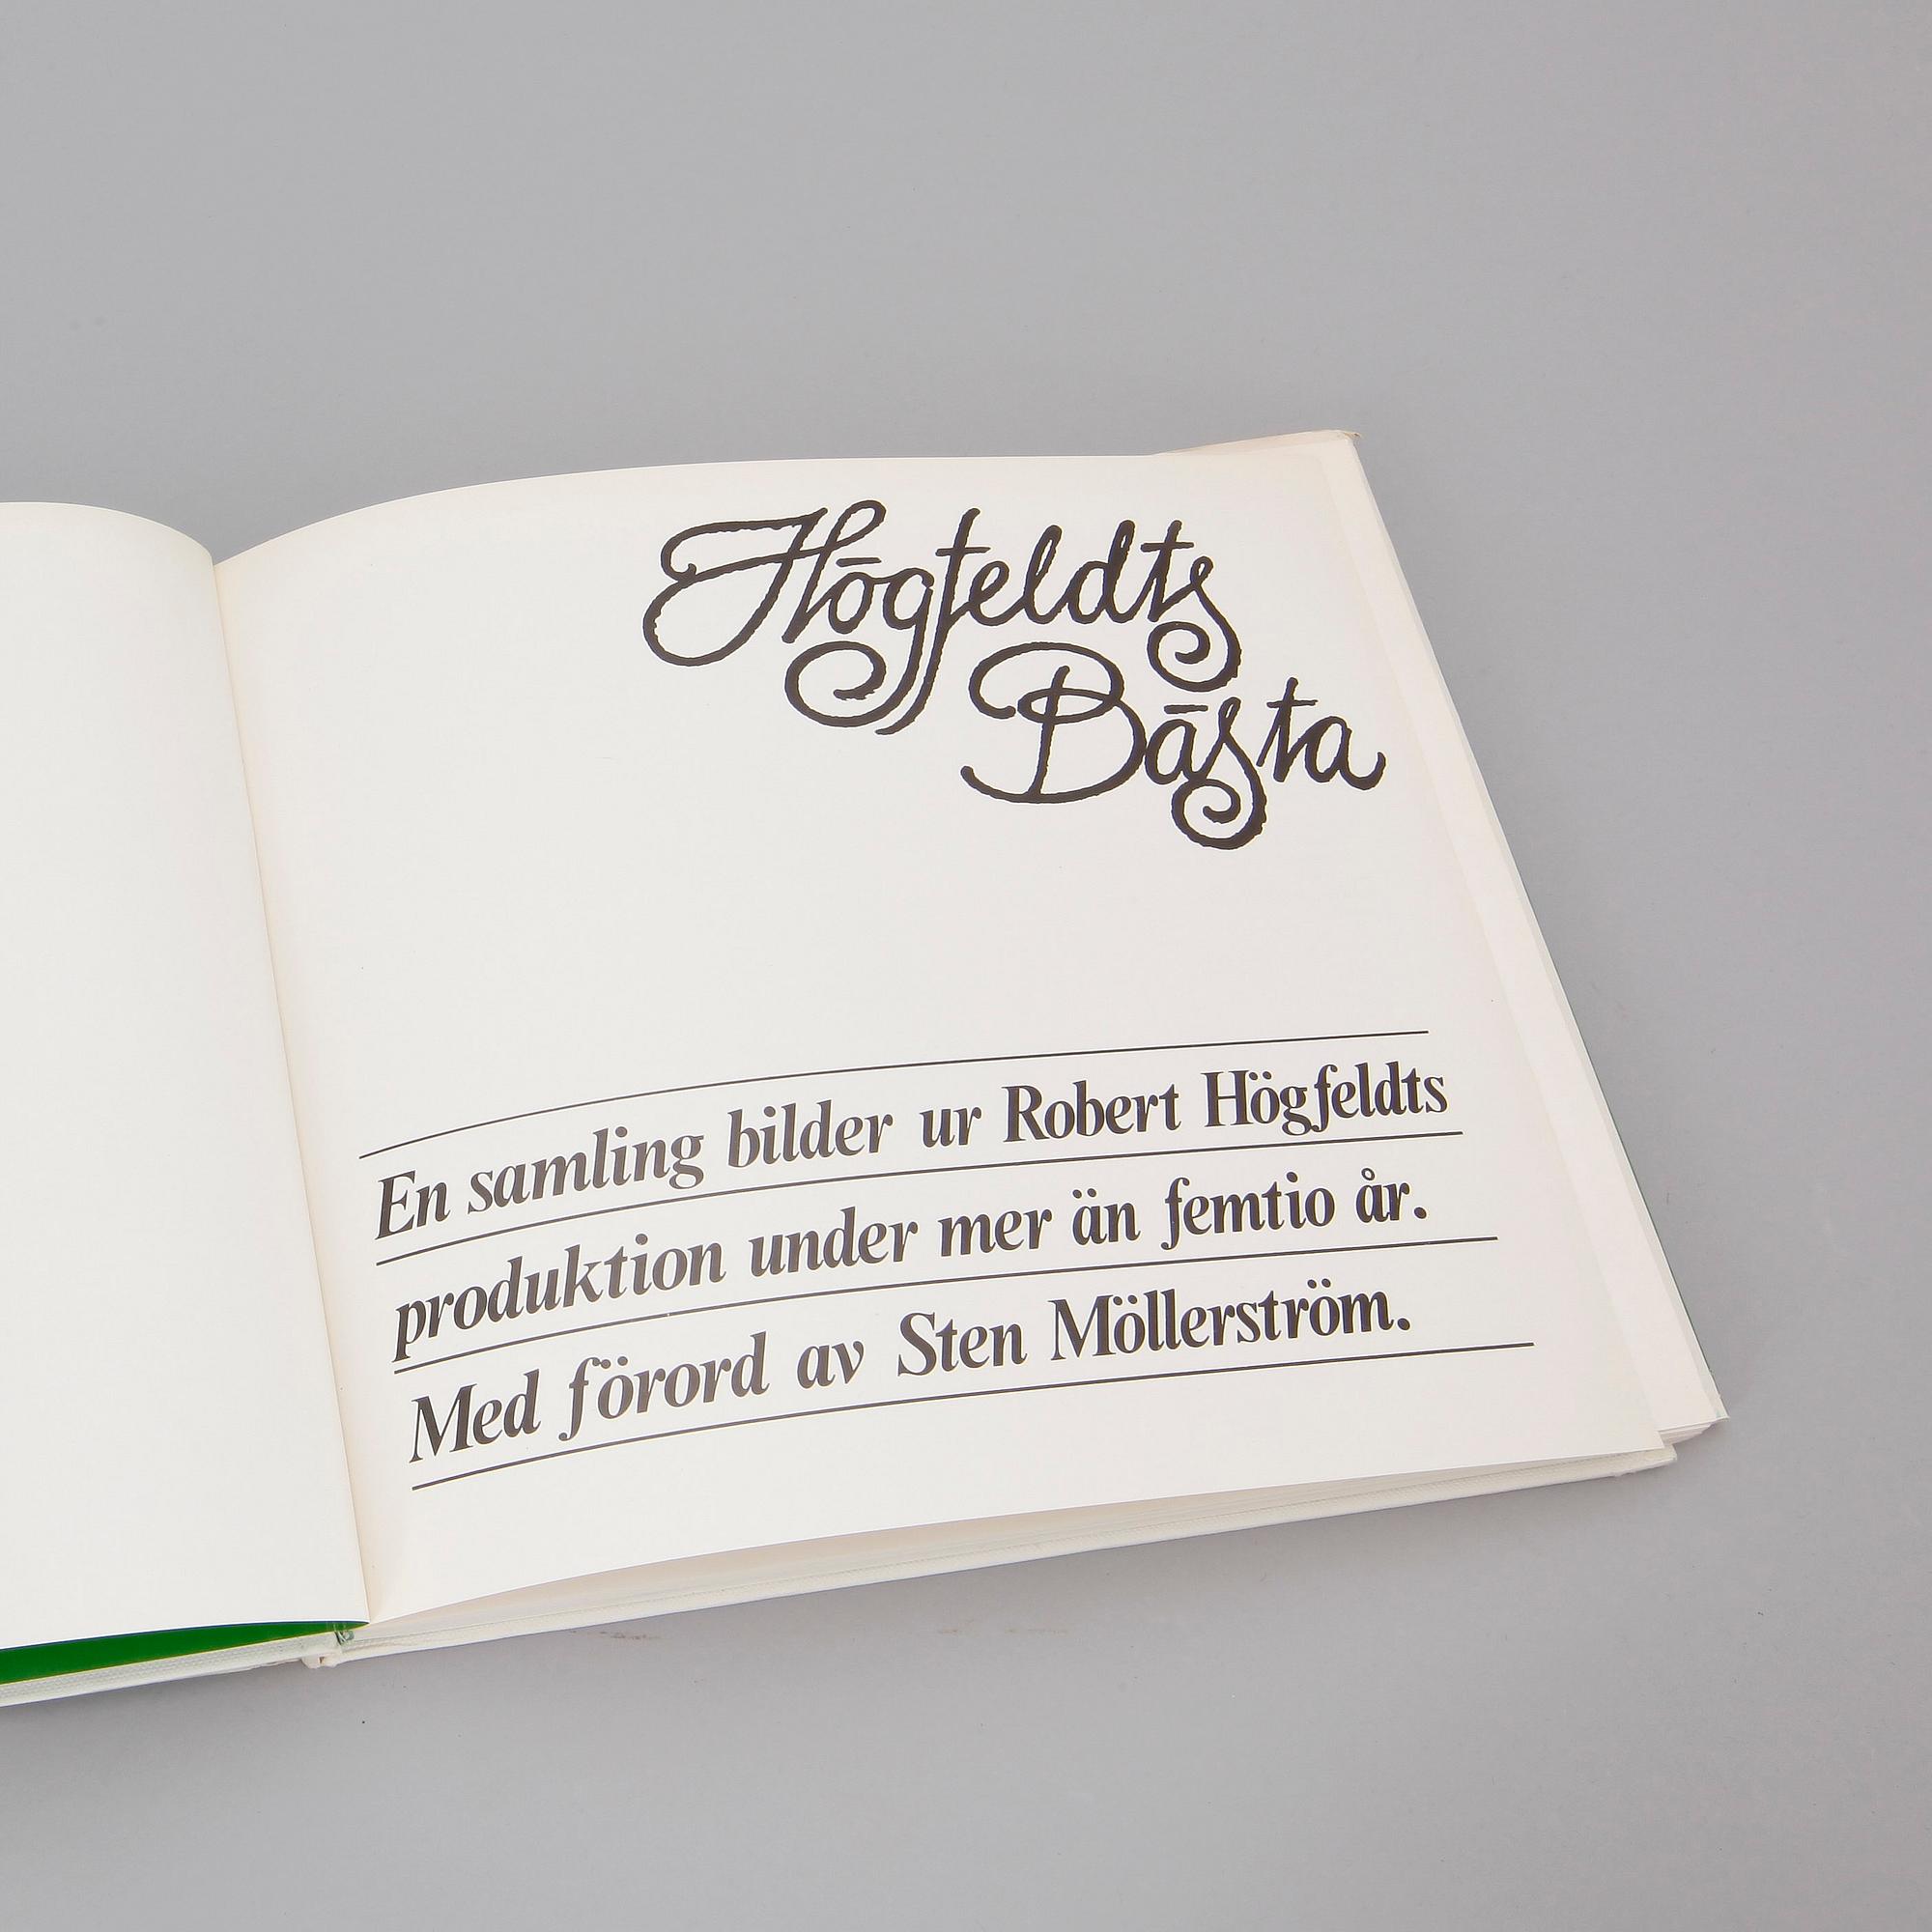 Högfeldts
Bästa
En samling bilder ur Robert Högfeldts
produktion under mer än femtio år.
Med förord av Sten Möllerström.